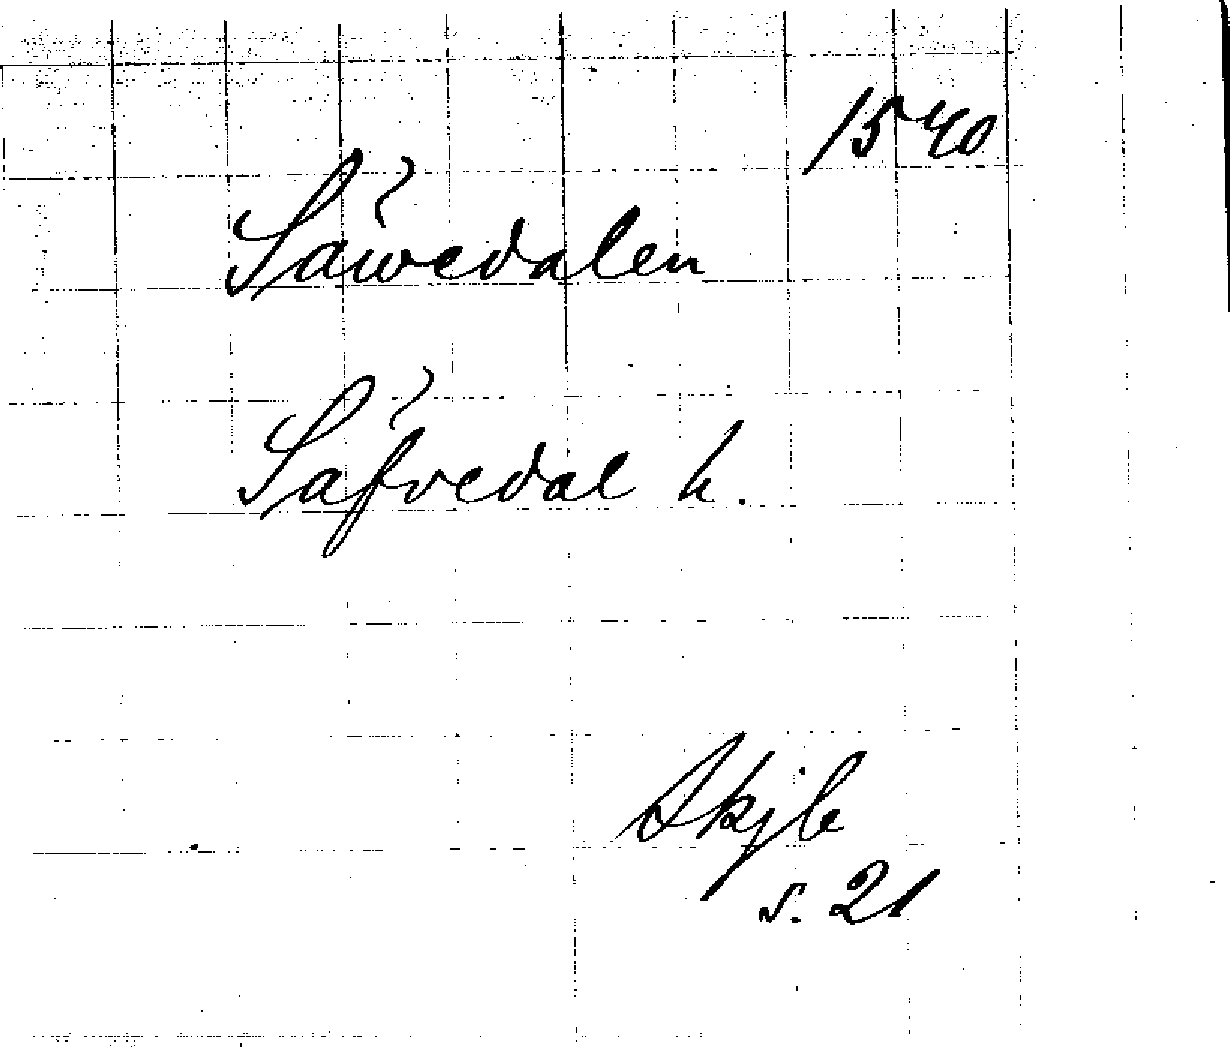 1540
Säwedalen
Säfvedal h.
Skjb
s. 21